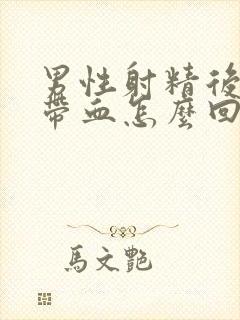 男性射精後
帶血怎麼回
馬文艷